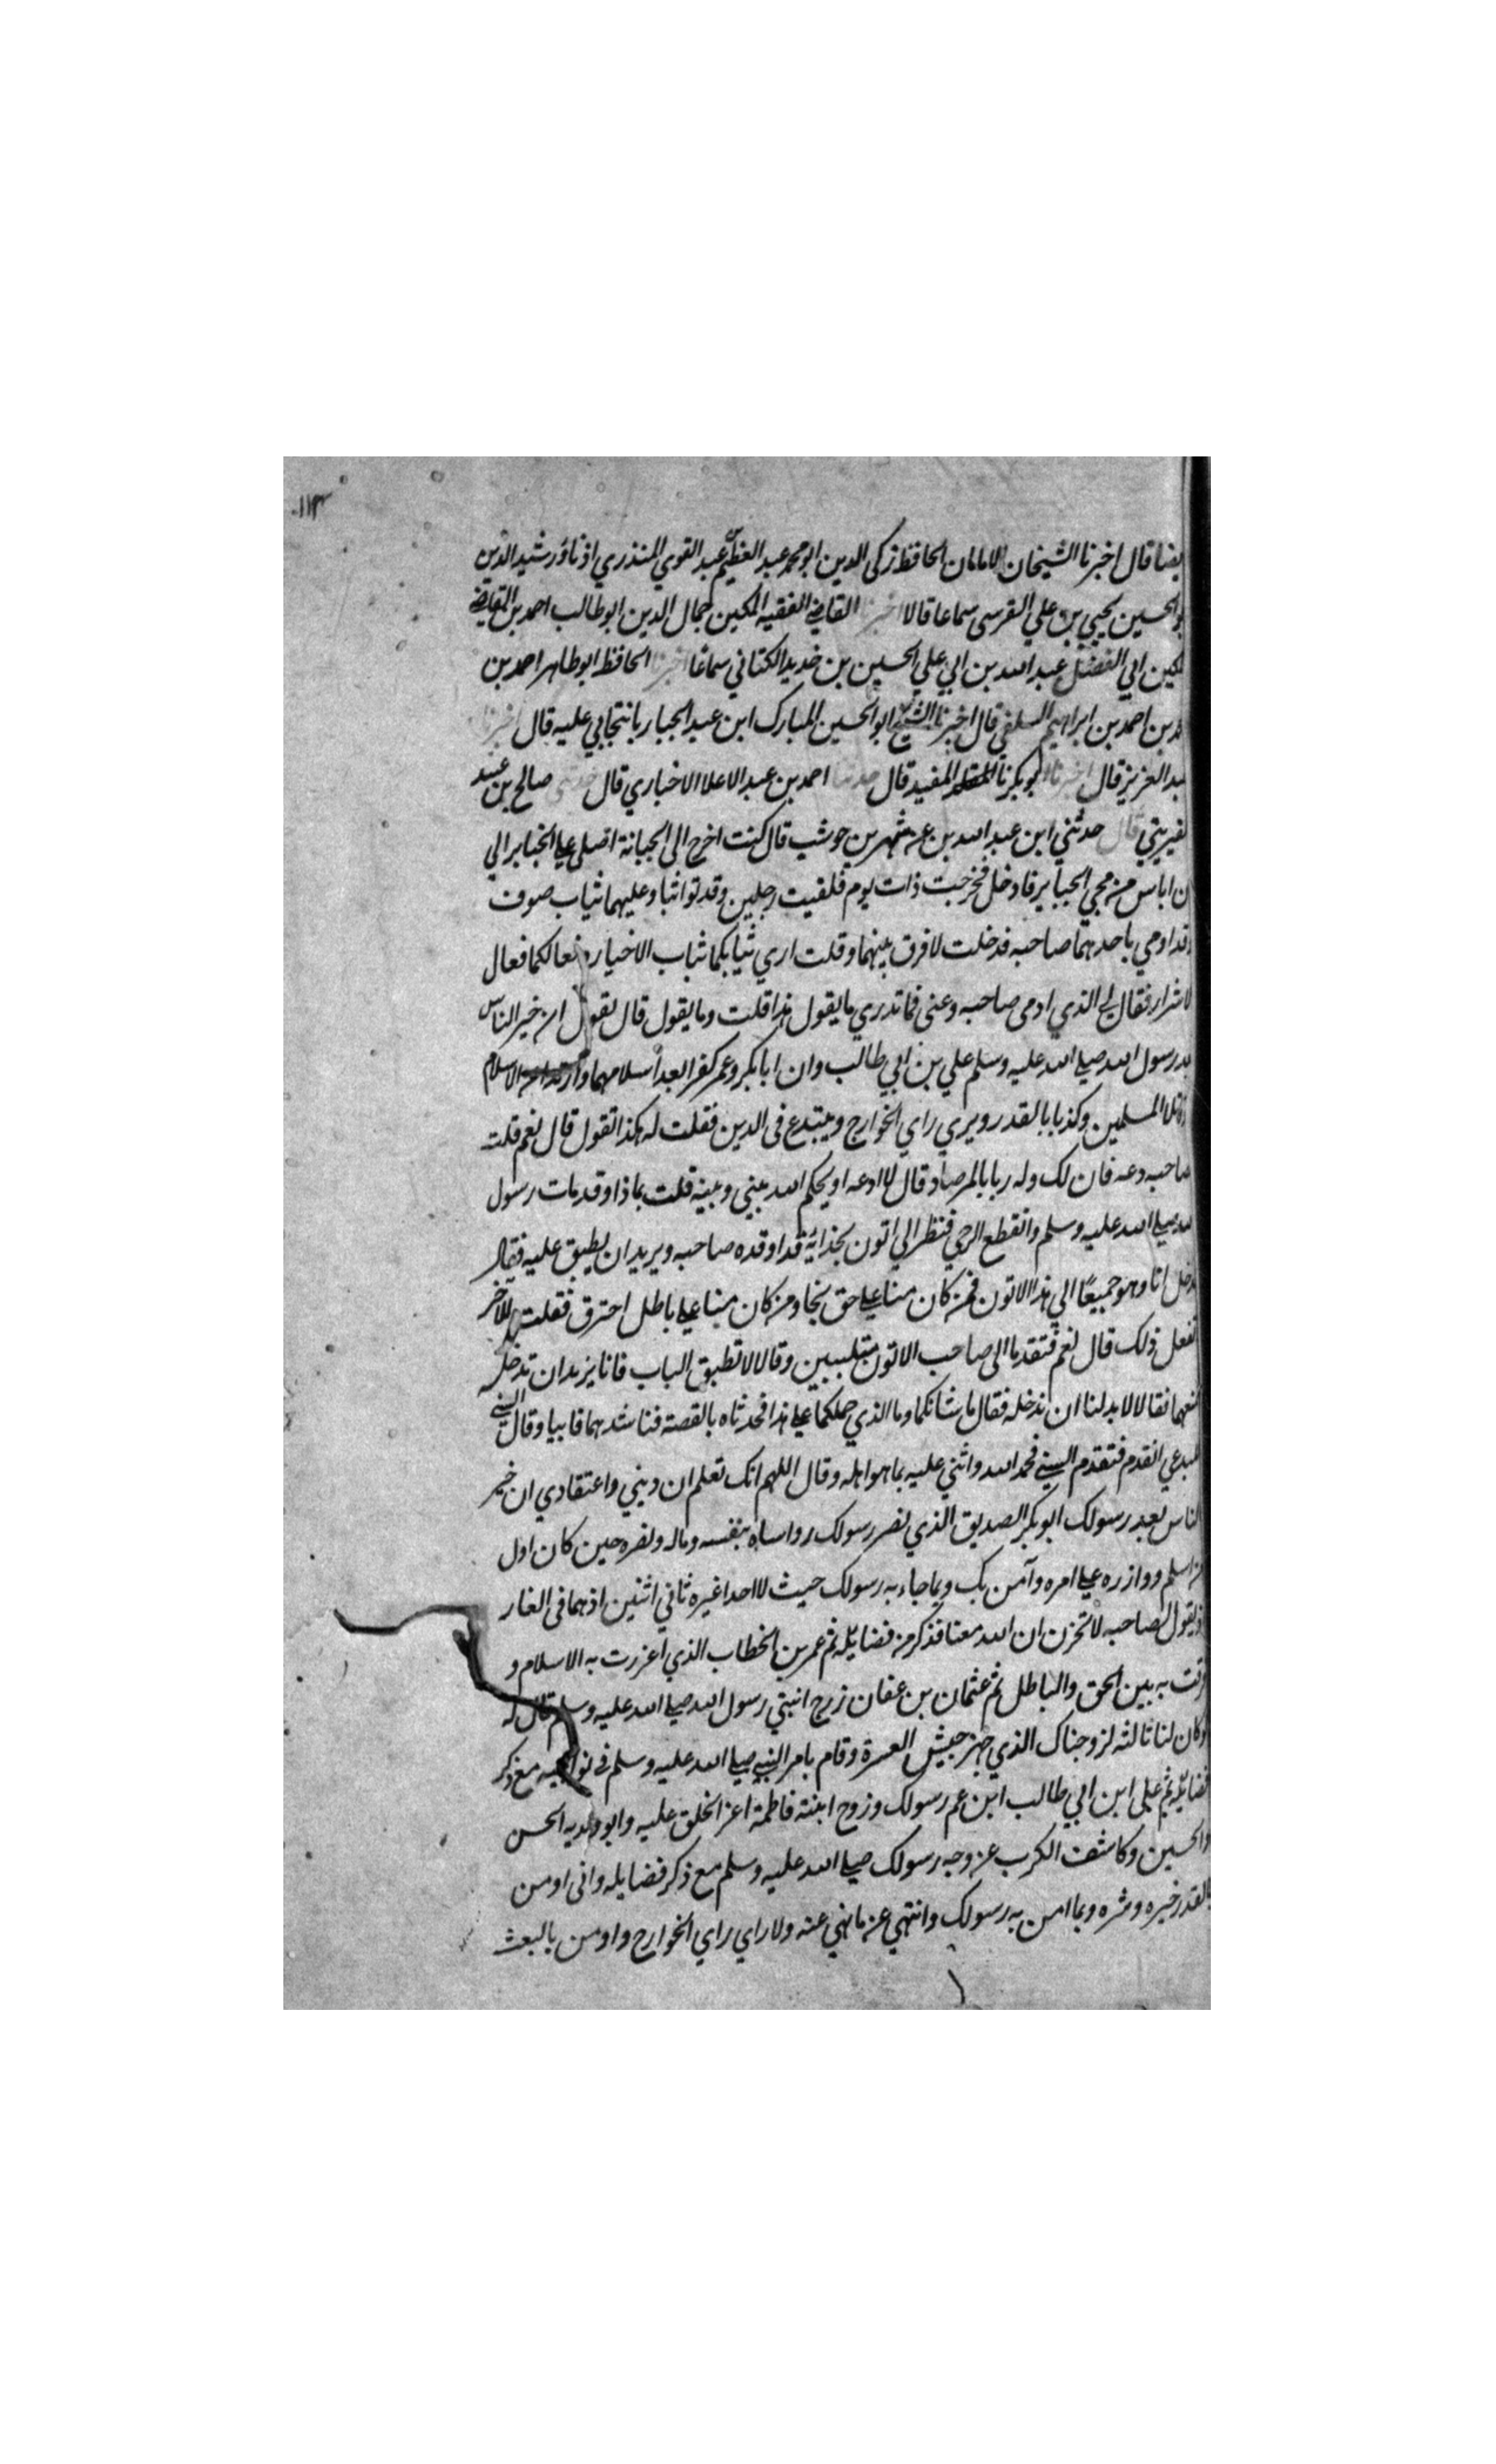 ١١٣
ايضا قال اخبرنا الشيخان الامامان الحافظ زكى الدين ابو محمد عبد العظيم بن عبد القوي المنذري اذنا ورشيد الدين
ابو الحسين يحيى بن علي القرسى سماعا قالا اخبرنا القاضي الفقيه المكين جمال الدين ابو طالب احمد بن القاضي
المكين ابي الفضل عبد الله بن ابي علي الحسين بن حديد الكناني سماعا اخبرنا الحافظ ابو طاهر احمد بن
محمد بن احمد بن ابراهيم السلفي قال اخبرنا الشيخ ابو الحسين المبارك ابن عبد الجبار بانتخابي عليه قال اخبرنا
عبد العزيز قال اخبرنا ابو بكر المفيد قال حدثنا احمد بن عبد الاعلا الاخباري قال حدثني صالح بن عبيد
قال حدثني ابن عبد الله بن عن شهر بن حوشب قال كنت اخرج الى الجبانة اصلى على الجنايز الي
ان اياس من مجي الجنايز فادخل فخرجت ذات يوم فلقيت رجلين وقد تواثبا وعليهما ثياب صوف
وقد اومي باحدهما صاحبه فدخلت لافرق بينهما وقلت اري ثيابكما ثياب الاخيار وفعالكما فعال
الاشرار فقال لي الذي ادمى صاحبه دعنى فما تدري ما يقول هذا قلت وما يقول قال يقول ان خير الناس
بعد رسول الله صلي الله عليه وسلم علي بن ابي طالب وان ابا بكر وعمر كفرا بعد اسلامهما وارتدا عن الاسلام
وقاتلا المسلمين وكذبا بالقدر ويري راي الخوارج ويبتدع فى الدين فقلت له هكذا تقول قال نعم قلت
لصاحبه دعه فان لك وله ربا بالمرصاد قال لا ادعه او يحكم الله بيني وبينه قلت بماذا وقد مات رسول
الله صلي الله عليه وسلم وانقطع الوحي فنظر الي اتون بحذائه قد اوقده صاحبه ويريد ان يطبق عليه فقال
ندخل انا وهو جميعا الي هذا الاتون فمن كان منا علي حق نجا ومن كان منا علي باطل احترق فقلت للآخر
تفعل ذلك قال نعم فتقدما الى صاحب الاتون متلببين وقالا لا تطبق الباب فانا نريد ان ندخله
فمنعهما فقالا لا بد لنا ان ندخله فقال ما شانكما وما الذي حملكما علي هذا فحدثاه بالقصة فناشدهما فابيا وقال السني
للمبدعي اتقدم فتقدم السني فحمد الله واثني عليه بما هو اهله وقال اللهم انك تعلم ان ديني واعتقادي ان خير
الناس بعد رسولك ابو بكر الصديق الذي نصر رسولك وواساه بنفسه وماله ونصره حين كان اول
من اسلم ووازره علي امره وآمن بك وبما جاء به رسولك حيث لا احدا غيره ثاني اثنين اذهما فى الغار
اذ يقول لصاحبه لا تحزن ان الله معنا فذكر من فضايله ثم عمر بن الخطاب الذي اعززت به الاسلام و
فرقت به بين الحق والباطل ثم عثمان بن عفان زوج ابنتي رسول الله صلي الله عليه وسلم قال له
لو كان لنا ثالثة لزوجناك الذي جهز جيش العسرة وقام بامر النبي صلي الله عليه وسلم في نوايبه مع ذكر
فضايله ثم على ابن ابي طالب ابن عم رسولك وزوج ابنته فاطمة اعز الخلق عليه وابو ولديه الحسن
والحسين وكاشف الكرب عن وجه رسولك صلي الله عليه وسلم مع ذكر فضايله وانى اومن
بالقدر خيره وشره وبما امن به رسولك وانتهي عن ما نهي عنه ولا راي راي الخوارج واومن بالبعث